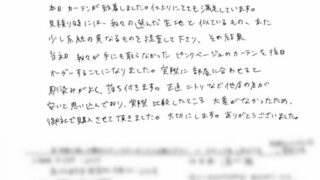 本日カーテンが到着しました。仕上りにとても満足しています。
見積り時には、我々の選んだ生地と似ているもの、また
少し系統の異なるものを提案して下さり、その結果
当初 我々が手にも取らなかったピンクベージュのカーテンを後日
オーダーすることになりました。実際に部屋に合わせると
馴染みがよく、落ち付きます。正直ニトリなど他店の方が
安いと思い込んでおり、実際比較したところ 大差がなかったため、
御社で購入させて頂きました。大切にします。ありがとうございました。